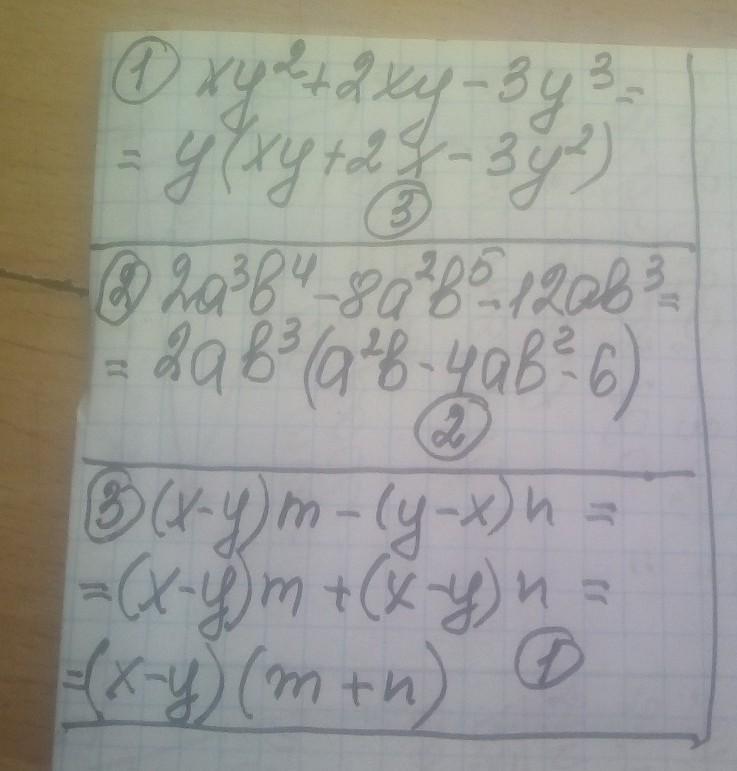 ① xy²+2xy-3y³=
= y(xy+2x-3y²)
③
② 2a³b⁴-8a²b⁵-12ab³=
= 2ab³(a²b-4ab²-6)
②
③ (x-y)m-(y-x)n=
=(x-y)m+(x-y)n=
=(x-y)(m+n) ①